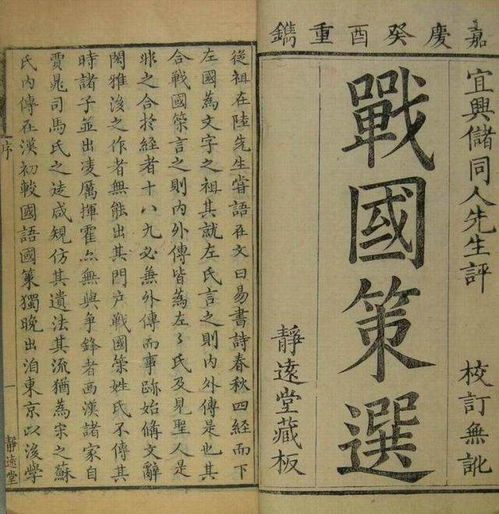 嘉慶癸酉重鐫
宜興儲同人先生評
戰國策選
校訂無訛
靜遠堂藏板
從祖在陸先生嘗語在文曰易書詩春秋四經而下
左國為文字之祖其就左氏言之則內外傳是也其
合戰國策言之則內外傳皆為左氏及見聖人是
非之合於經者十八九必無外傳而事跡始備文辭
閎雅後之作者無能出其門戶戰國策姓氏不傳其
時諸子並出凌厲揮霍無與爭鋒者西漢諸家自
賈晁司馬氏之徒咸規仿其遺法其流猶為宋之蘇
氏內傳在漢初較國語國策獨晚出洎東京以後學
序
一
靜遠堂